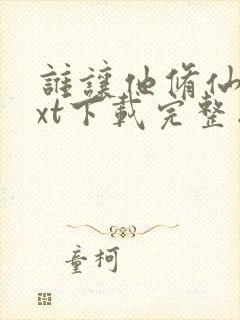 誰讓他脩仙
xt下載完整
童柯